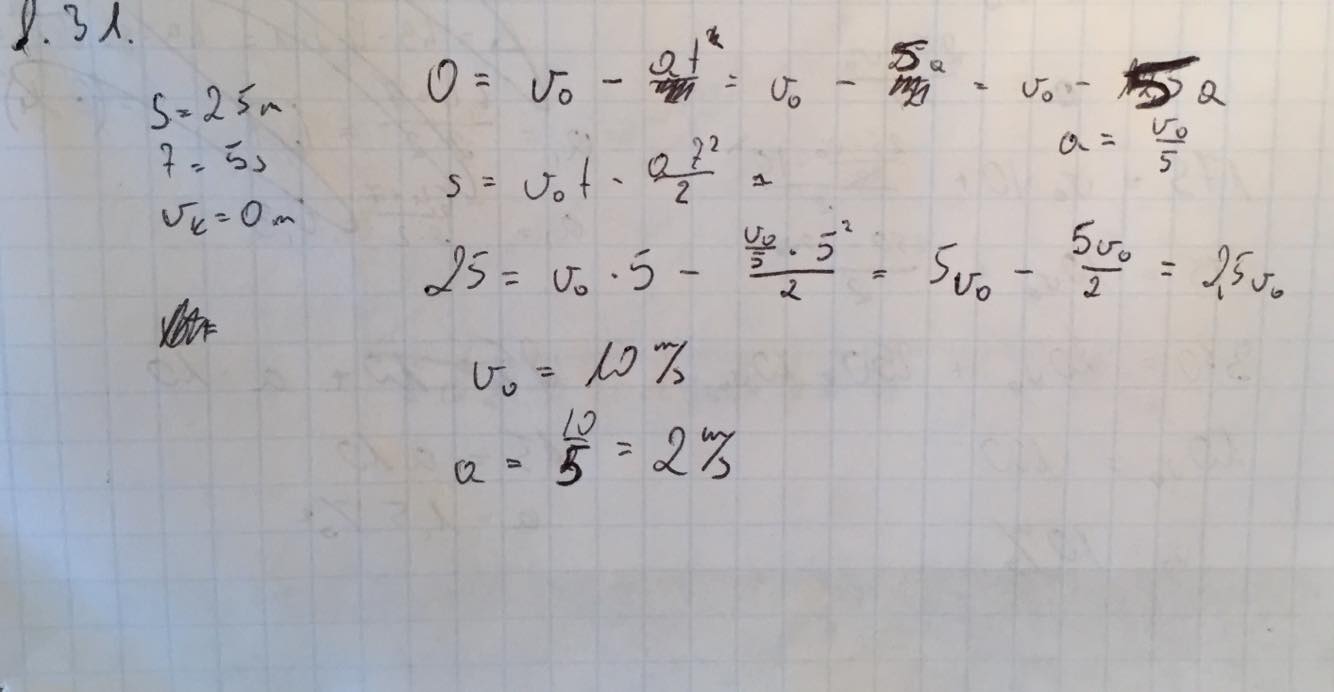 1.31.
S = 25 m
t = 5s
v_k = 0 m
0 = v₀ - at = v₀ - 5a = v₀ - 5a
a = v₀/5
s = v₀t - at²/2 =
25 = v₀ · 5 - (v₀/5 · 5²)/2 = 5v₀ - 5v₀/2 = 2,5v₀
v₀ = 10 m/s
a = 10/5 = 2 m/s